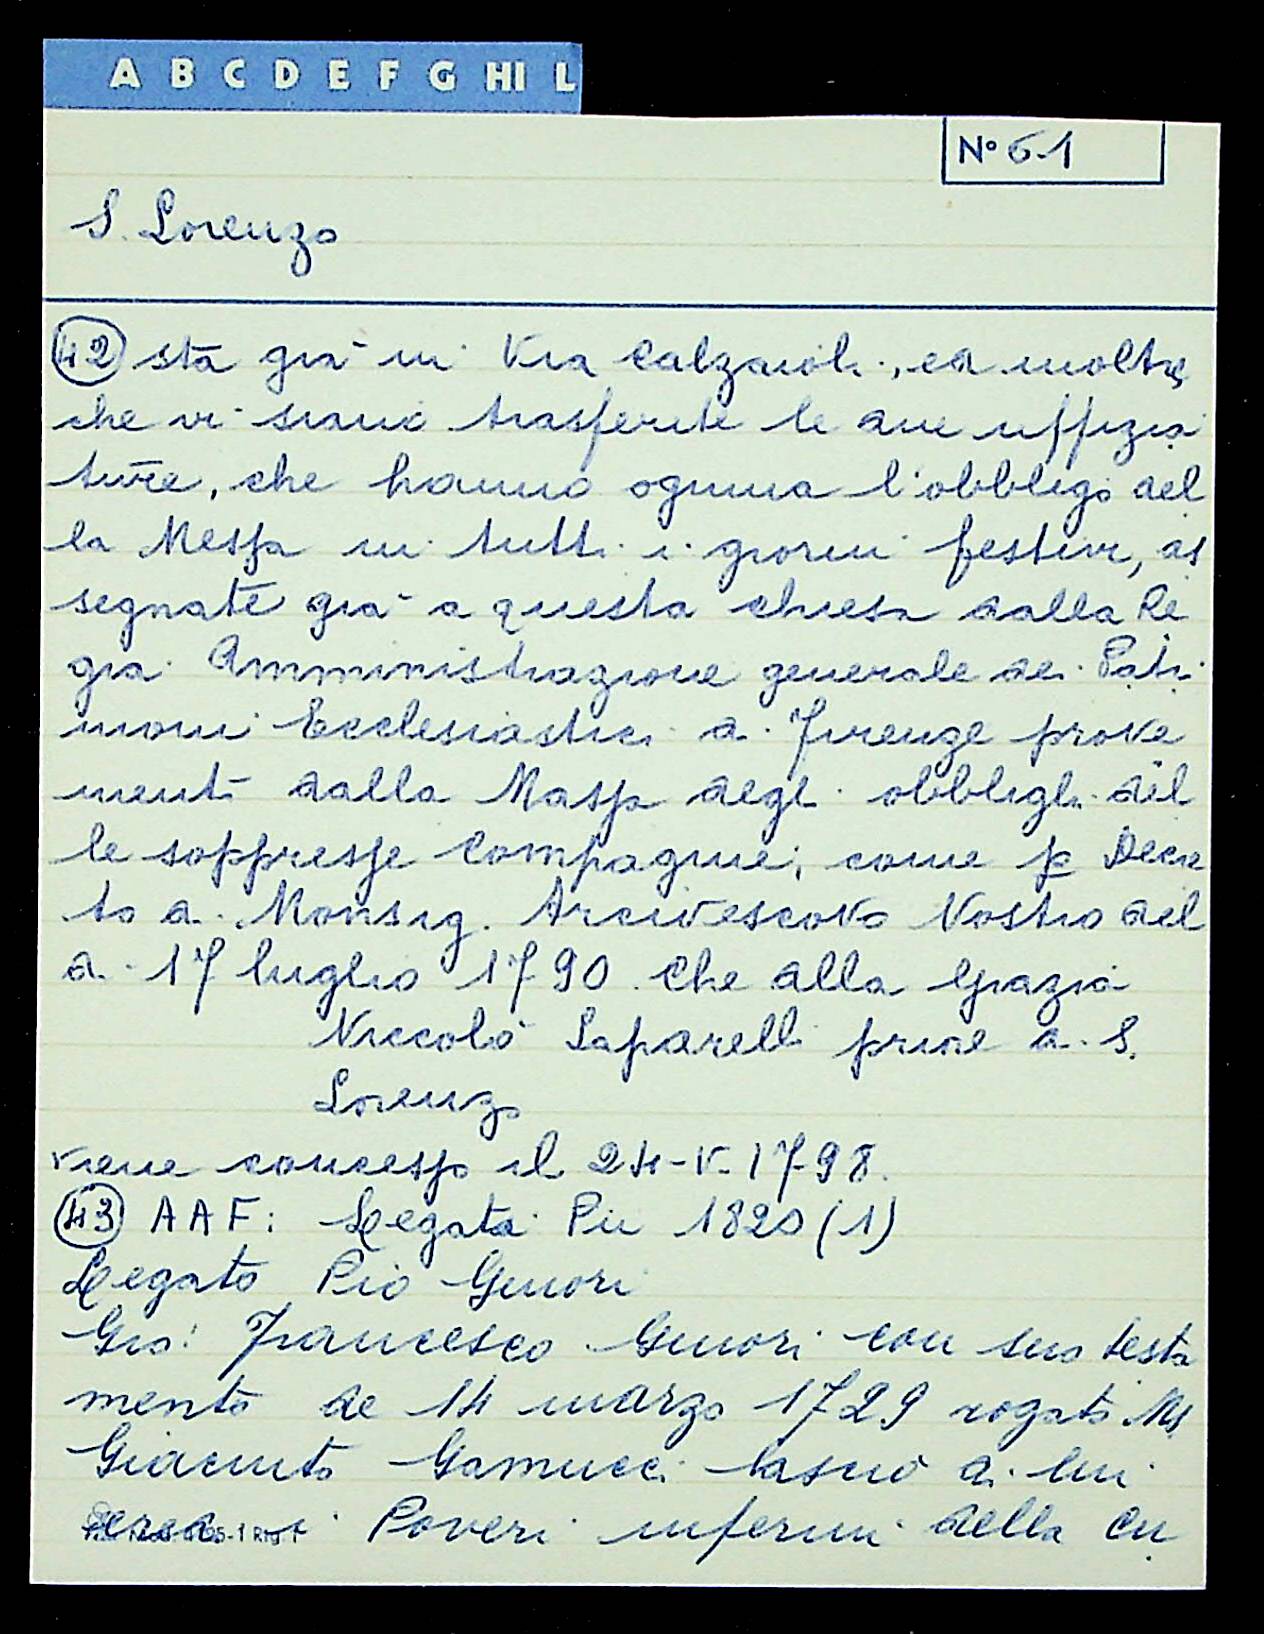 A B C D E F G HI L
N° 61
S. Lorenzo
42 sta già in Via Calzaioli, ed inoltre
che vi siano trasferite le due uffizia
ture, che hanno ognuna l'obbligo del
la Messa in tutti i giorni festivi, as
segnate già a questa chiesa dalla Re
gia Amministrazione generale dei Patri
moni Ecclesiastici di Firenze prove
nienti dalla Massa degli obblighi del
le soppresse Compagnie, come p Decre
to di Monsig. Arcivescovo Nostro del
dì 17 luglio 1790. Che alla Grazia
Niccolò Laparelli priore di S.
Lorenzo
viene concesso il 24-V-1798.
43 AAF: Legati Pii 1820 (1)
Legato Pio Ginori
Gio: Francesco Ginori con suo testa
mento de 14 marzo 1729 rogato Ms
Giacinto Gamucci lasciò di lui
eredi i Poveri infermi della Cu